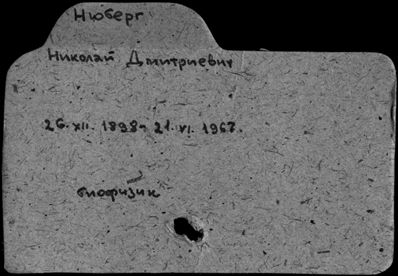 Нюберг
Николай Дмитриевич
26. XII. 1898 - 21. VI. 1967.
биофизик